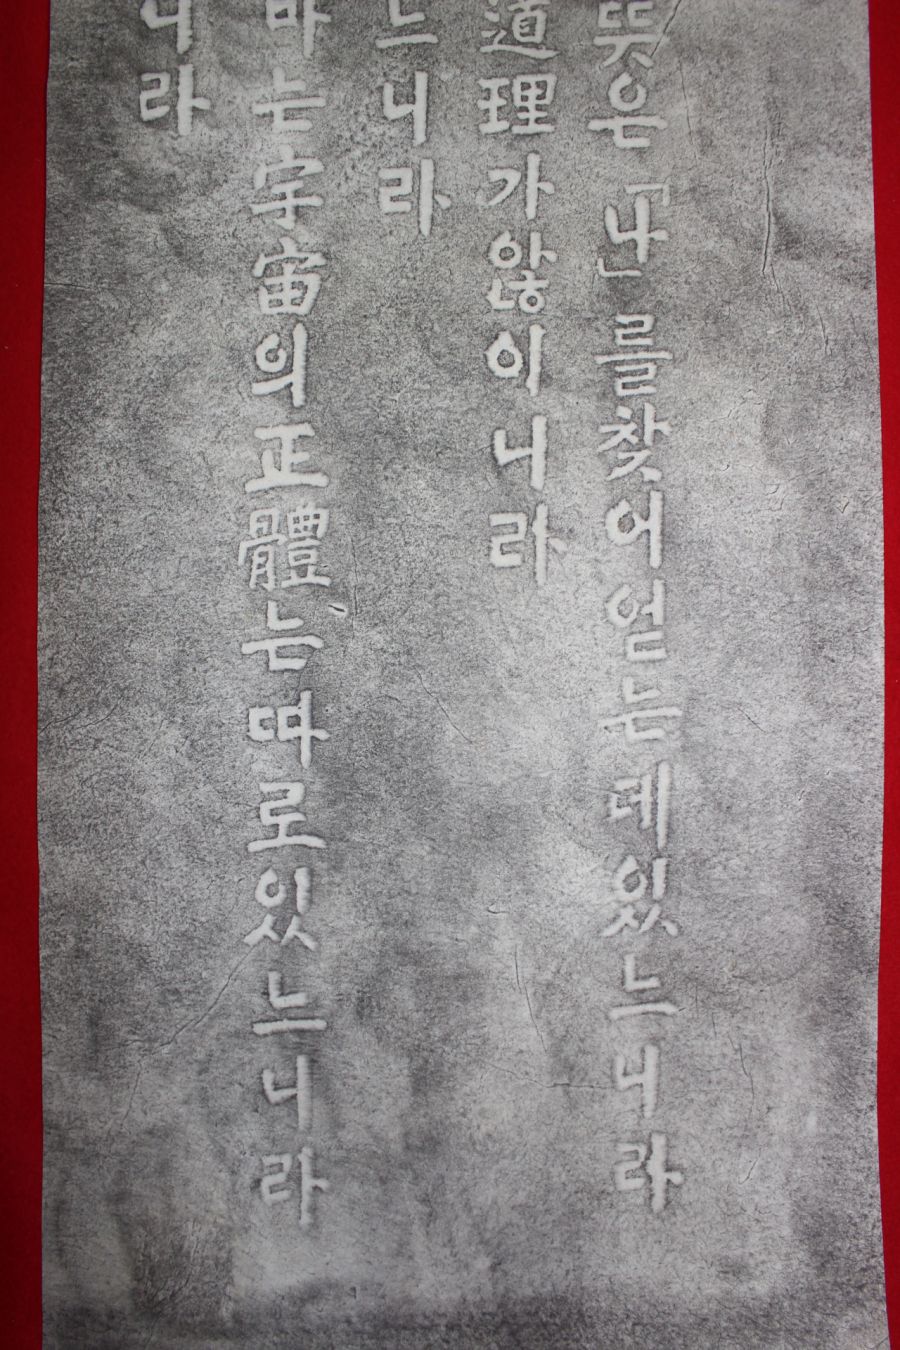 뜻은「나」를찾어얻는데있느니라
道理가않이니라
느니라
하는宇宙의正體는따로있느니라
니라